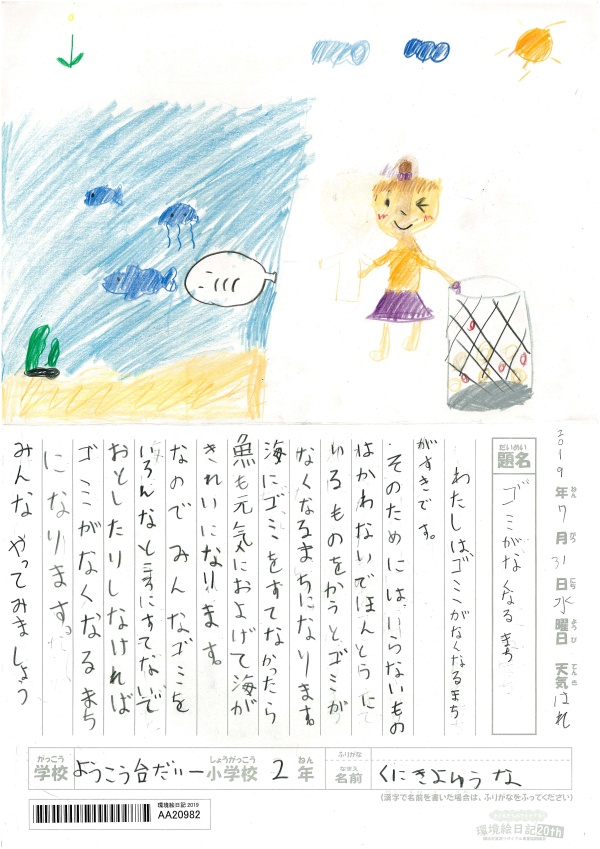 2019年7月31日水曜日 天気はれ
ねん がつ にち ようび てんき
だいめい
題名 ゴミがなくなるまち
わたしは、ゴミがなくなるまち
がすきです。
そのためには、いらないもの
はかわないでほんとうに
いるものをかうとゴミが
なくなるまちになります。
海にゴミをすてなかったら
魚も元気におよげて海が
きれいになります。
なのでみんなゴミを
いろんなところにすてないで
おとしたりしなければ
ゴミがなくなるまち
になります。
みんなやってみましょう
がっこう しょうがっこう ねん
学校 ようこう台だい一 小学校 2年
ふりがな
なまえ
名前 くにきよゆうな
(漢字で名前を書いた場合は、ふりがなをふってください)
環境絵日記 2019
AA20982
環境絵日記20th